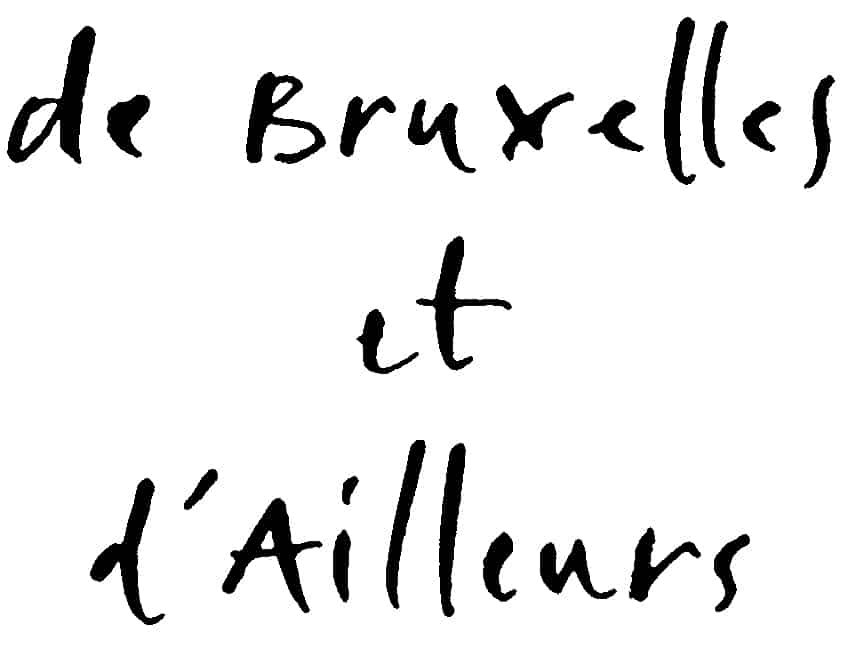 de Bruxelles
et
d'Ailleurs